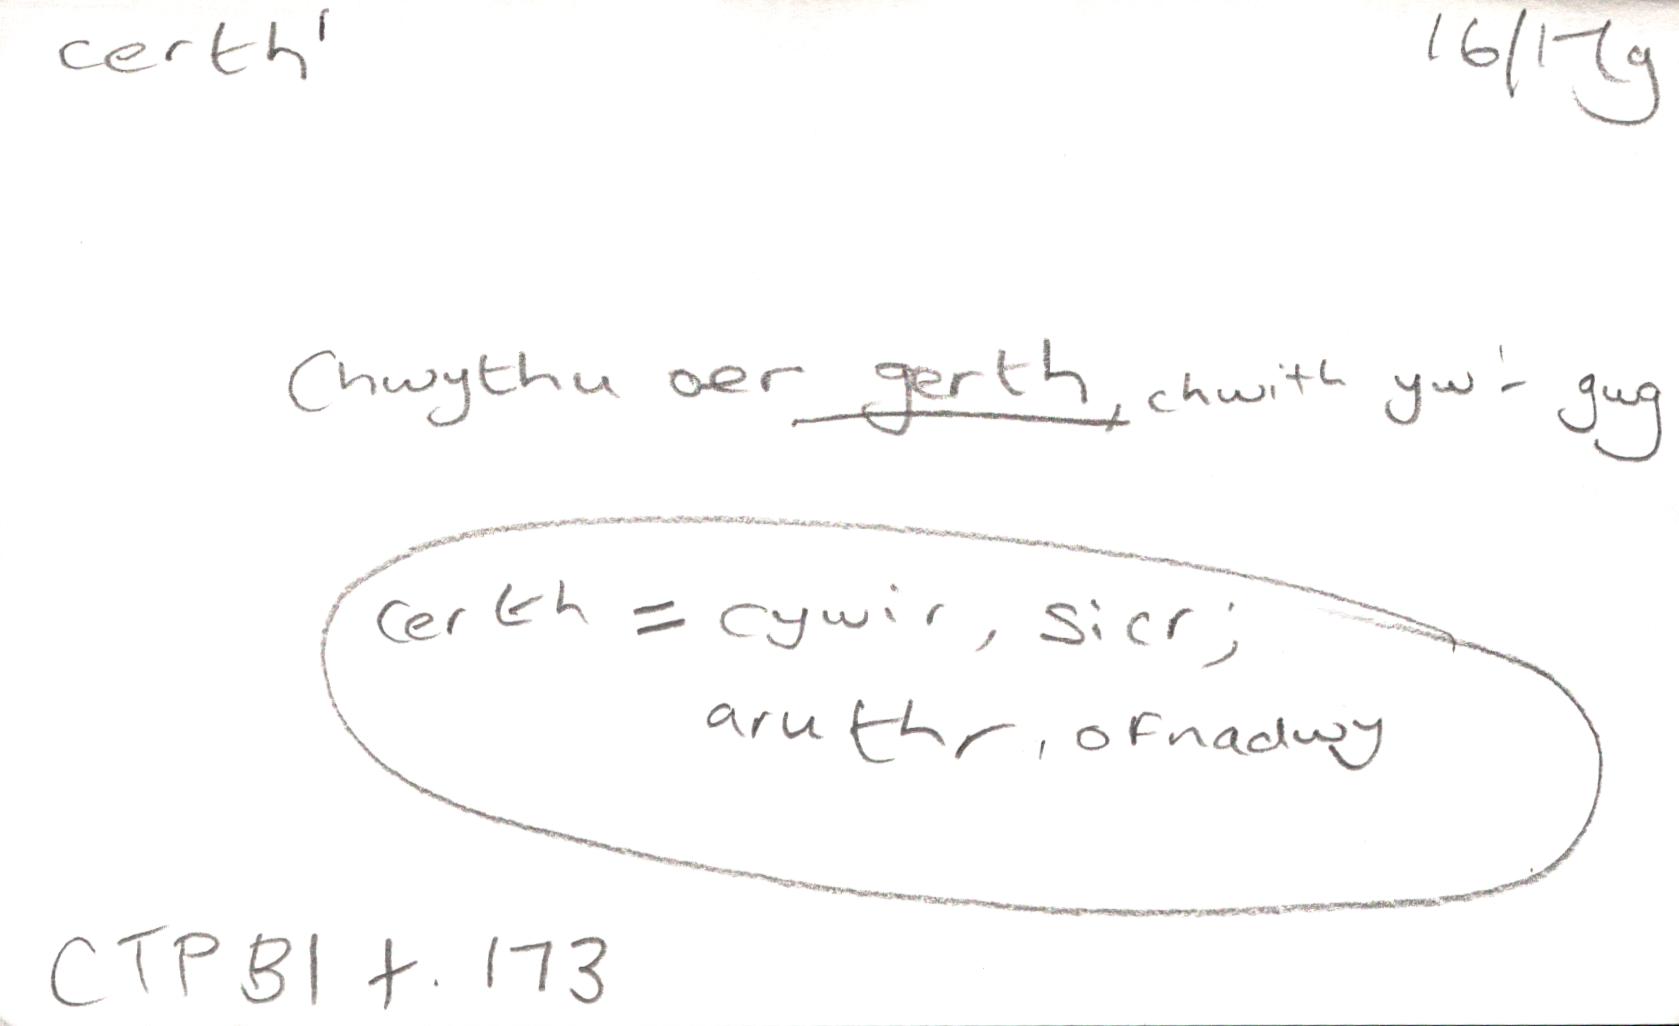 certh¹ 16/17g
Chwythu oer gerth, chwith yw'r gwg
certh = cywir, sicr;
aruthr, ofnadwy
CTPB1 t. 173